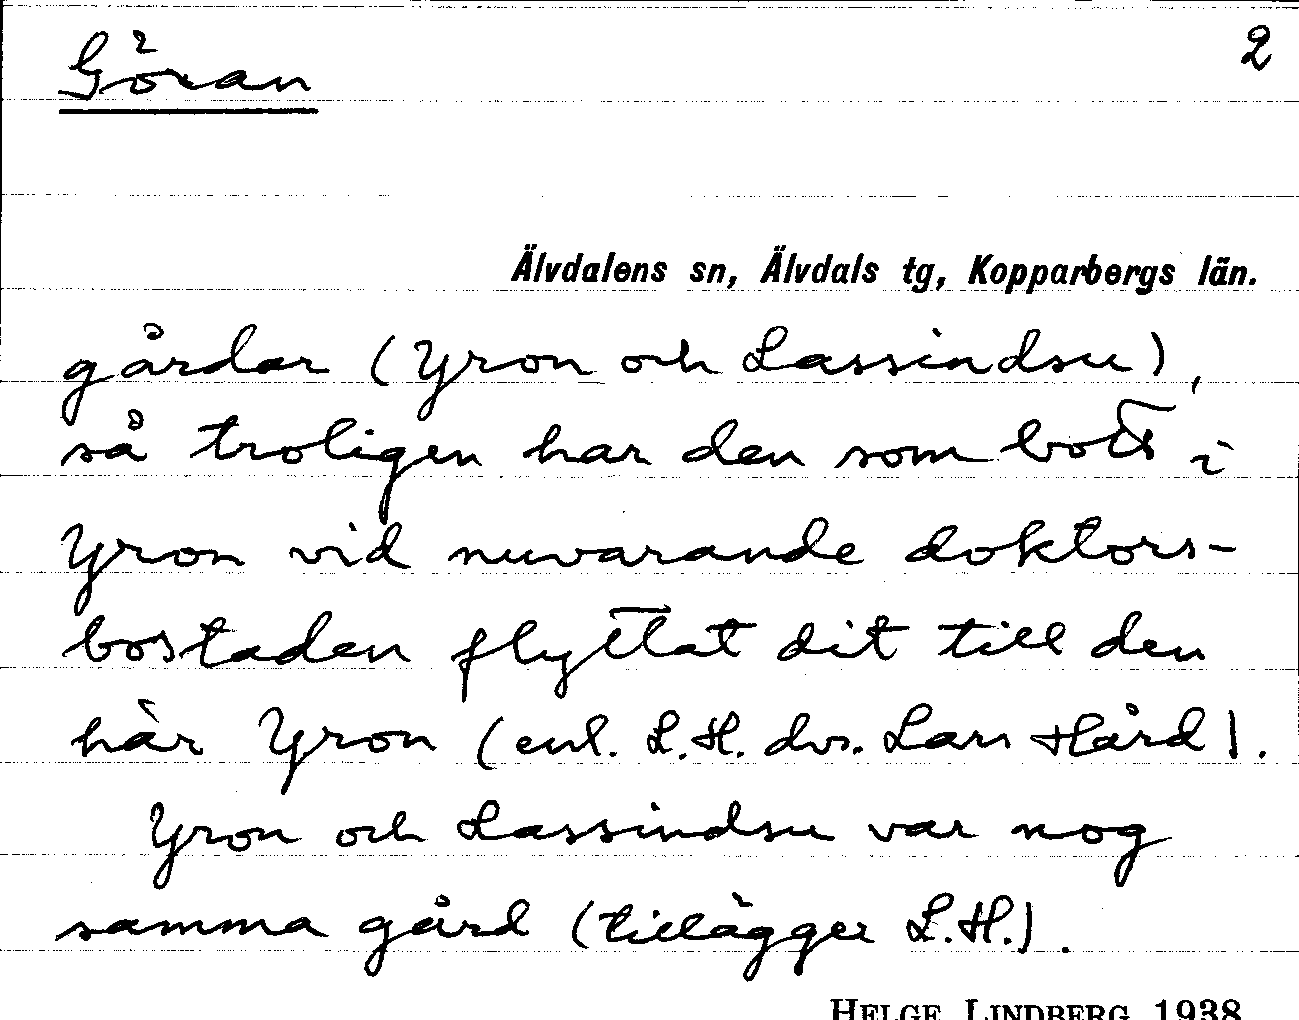 Göran
2
Älvdalens sn, Älvdals tg, Kopparbergs län.
gårdar (Yron och Lassindsu),
så troligen har den som bott i
Yron vid nuvarande doktors-
bostaden flyttat dit till den
här Yron (enl. L.H. dvs. Lars Hård).
Yron och Lassindsu var nog
samma gård (tillägger L.H.).
HELGE LINDBERG 1938